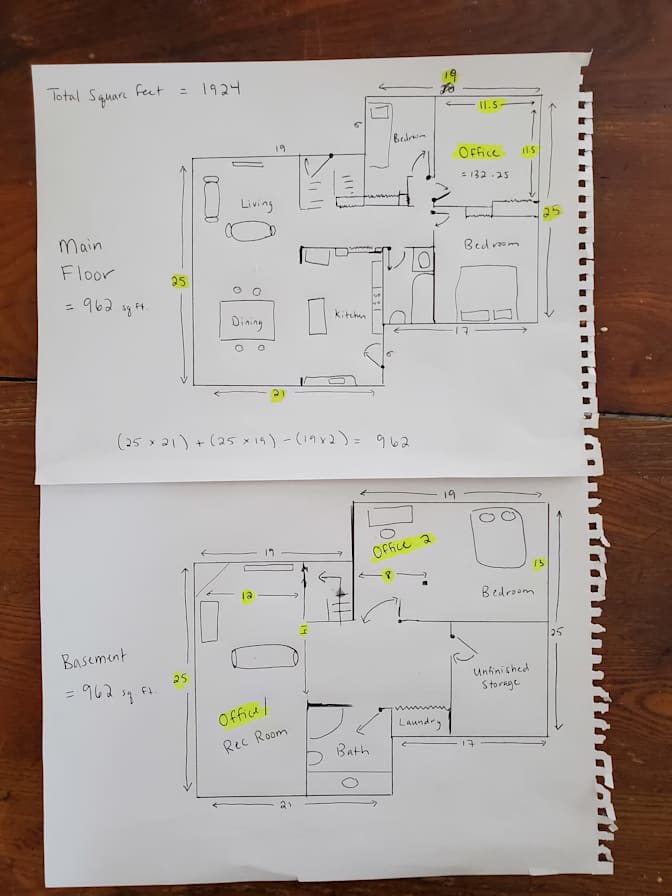 Total Square feet = 1924
19
11.5
6
Bedroom
Office
11.5
= 132.25
19
Living
25
Main
Floor
= 962 sq ft.
25
Bedroom
Dining
Kitchen
17
6
21
(25 x 21) + (25 x 19) - (19 x 2) = 962
19
Office 2
19
8
13
Bedroom
12
11
Basement
= 962 sq ft.
25
25
Unfinished
Storage
Office 1
Rec Room
Laundry
Bath
17
21